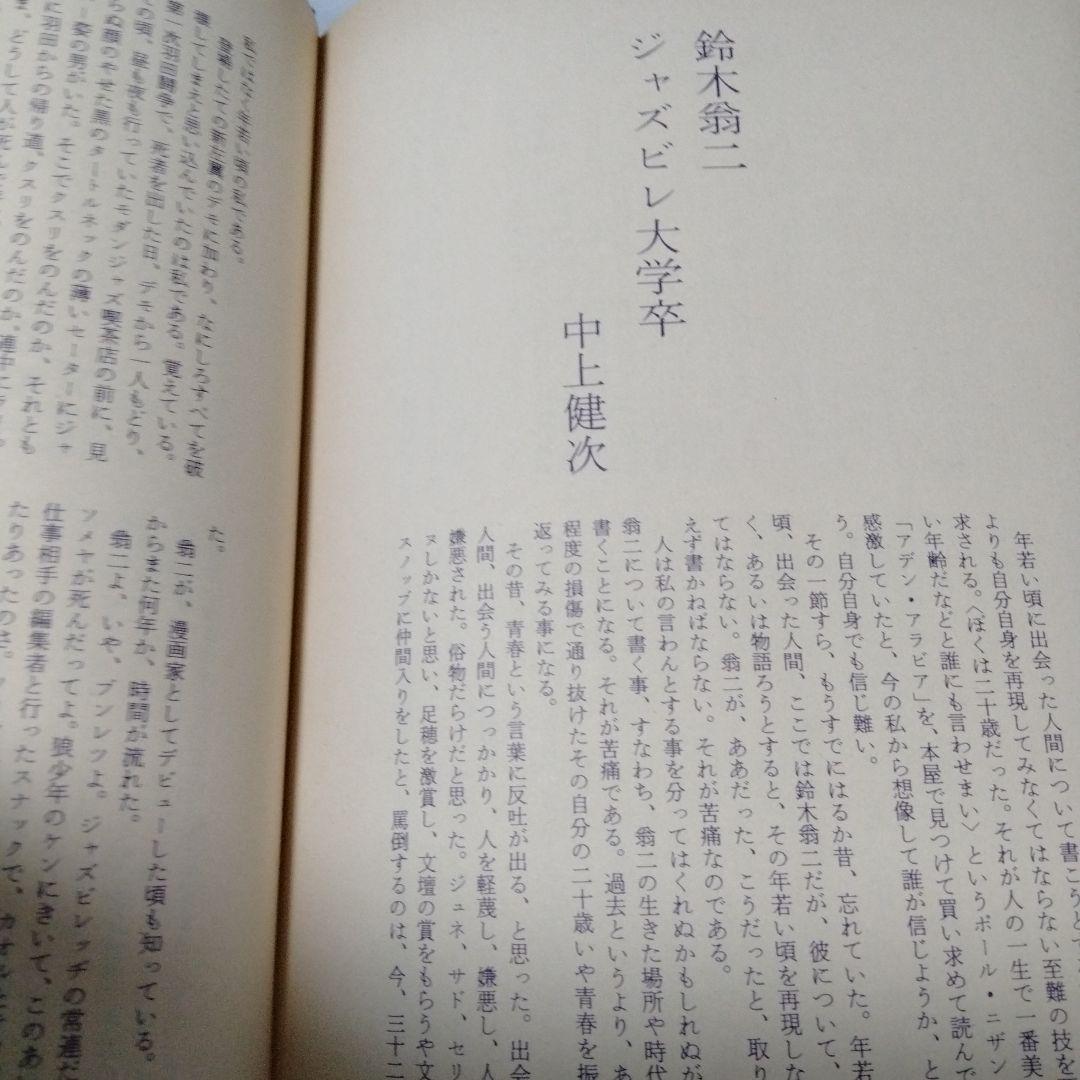 鈴木翁二
ジャズビレ大学卒
中上健次
年若い頃に出会った人間について書こうと
よりも自分自身を再現してみなくてはならない至難の技を
求される。〈ぼくは二十歳だった。それが人の一生で一番美
い年齢だなどと誰にも言わせまい〉というポール・ニザン
「アデン・アラビア」を、本屋で見つけて買い求めて読んで
感激していたと、今の私から想像して誰が信じようか、と
う。自分自身でも信じ難い。
その一節すら、もうすでにはるか昔、忘れていた。年若
頃、出会った人間、ここでは鈴木翁二だが、彼について、
く、あるいは物語ろうとすると、その年若い頃を再現しな
てはならない。翁二が、ああだった、こうだったと、取り
えず書かねばならない。それが苦痛なのである。
人は私の言わんとする事を分ってはくれぬかもしれぬが
翁二について書く事、すなわち、翁二の生きた場所や時代
書くことになる。それが苦痛である。過去というより、あ
程度の損傷で通り抜けたその自分の二十歳いや青春を振
返ってみる事になる。
その昔、青春という言葉に反吐が出る、と思った。出会
人間、出会う人間につっかかり、人を軽蔑し、嫌悪し、人
嫌悪された。俗物だらけだと思った。ジュネ、サド、セリ
ヌしかないと思い、足穂を激賞し、文壇の賞をもらうや文
スノッブに仲間入りをしたと、罵倒するのは、今、三十二
私ではなく年若い頃の私である。
登場したての新左翼のデモに加わり、なにしろすべてを破
壊してしまえと思い込んでいたのは私である。覚えている。
第一次羽田闘争で、死者を出した日、デモから一人もどり、
の頃、昼も夜も行っていたモダンジャズ喫茶店の前に、見
らぬ顔のやせた黒のタートルネックの薄いセーターにジャ
ー姿の男がいた。そこでクスリをのんだのか、それとも
羽田からの帰り道、クスリをのんだのか、連中に
、どうして人が死んだ
た。
翁二が、漫画家としてデビューした頃も知っている。
からまた何年か、時間が流れた。
翁二よ、いや、ブンレツよ。ジャズビレッヂの常連だ
ソメヤが死んだってよ。狼少年のケンにきいて、このあ
仕事相手の編集者と行ったスナックで、
たりあったのさ。